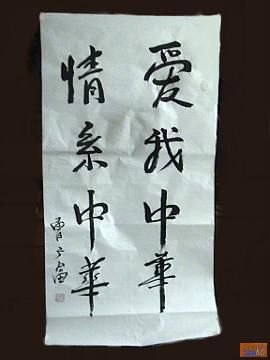 爱我中華
情系中華